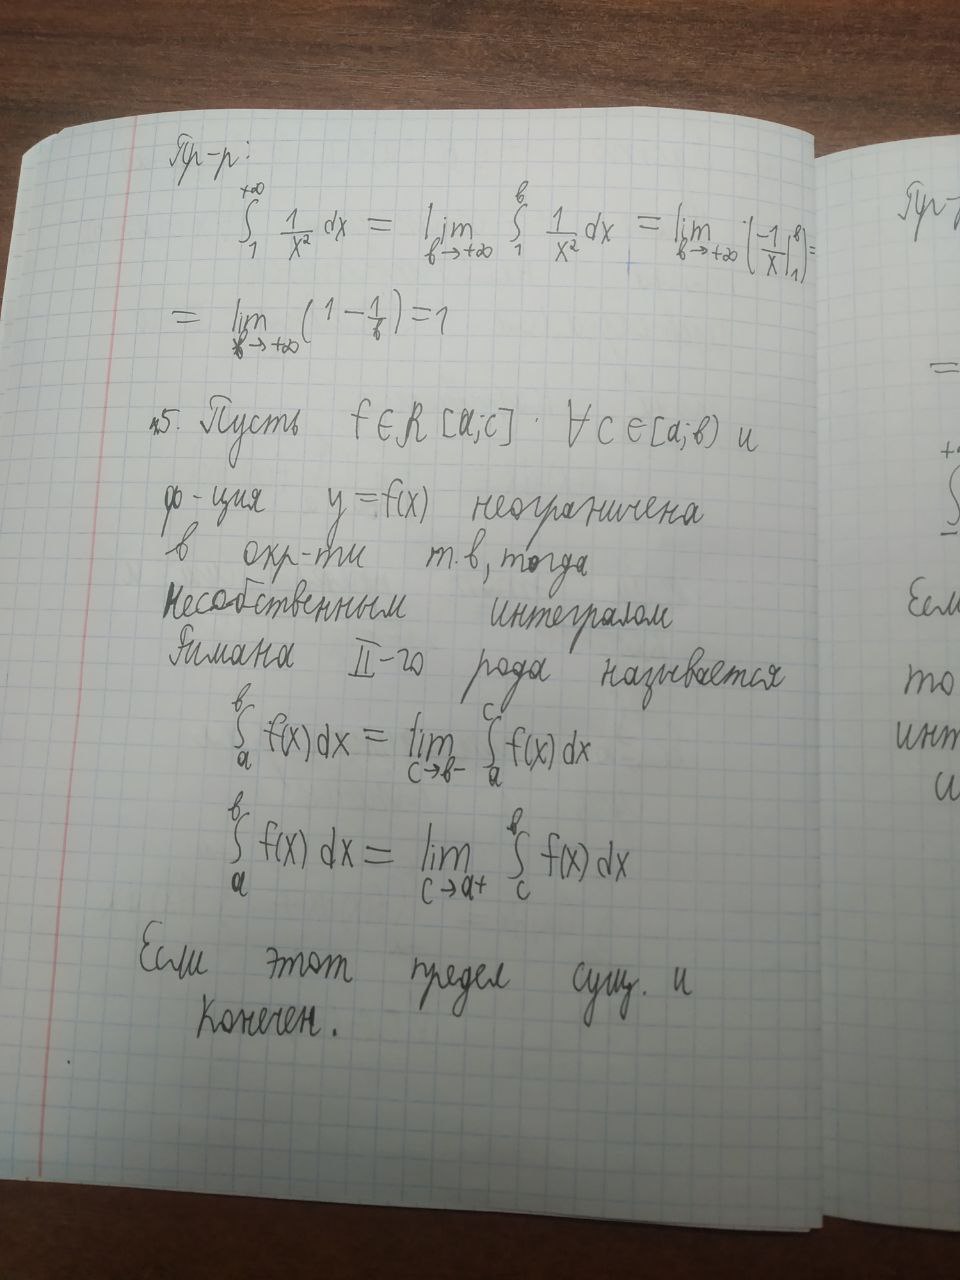 Пр-р:
∫₁^{+∞} 1/x² dx = lim_{b→+∞} ∫₁^b 1/x² dx = lim_{b→+∞} (-1/x |₁^b) =
= lim_{b→+∞} (1 - 1/b) = 1
5. Пусть f ∈ R [a;c] ∀ c ∈ [a;b) и
ф-ция y = f(x) неограничена
в окр-ти т. b, тогда
Несобственным интегралом
Римана II-го рода называется
∫ₐ^b f(x) dx = lim_{c→b-} ∫ₐ^c f(x) dx
∫ₐ^b f(x) dx = lim_{c→a+} ∫_c^b f(x) dx
Если этот предел сущ. и
Конечен.
Пр-
=
∫
Если
то
инт
и